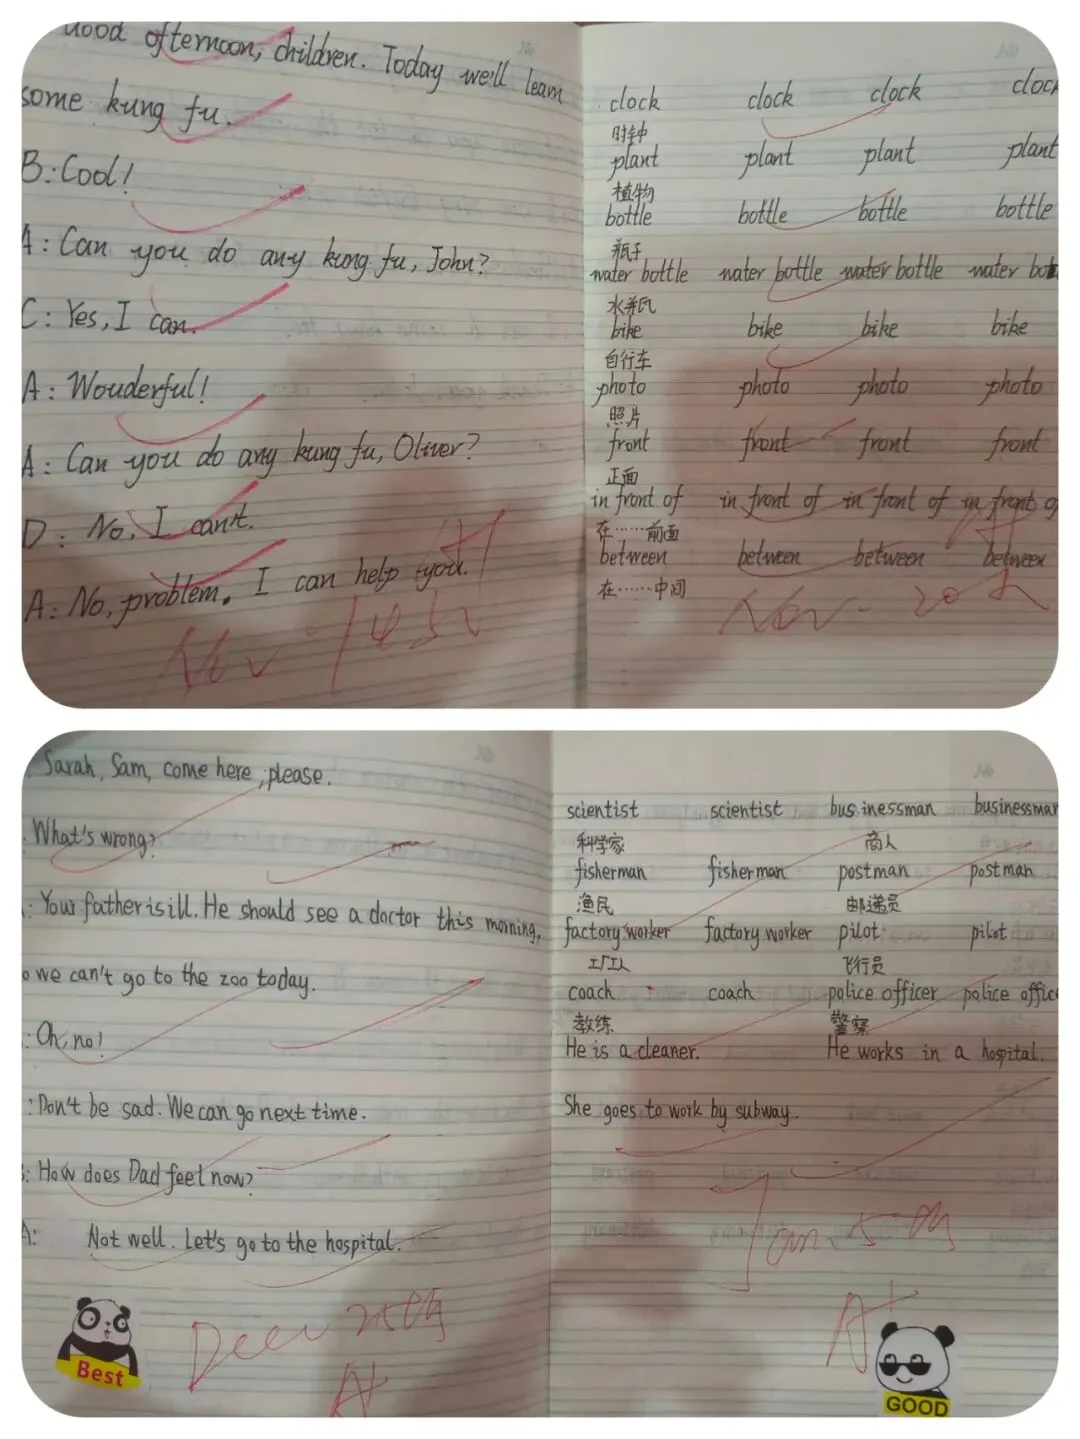 Good afternoon, children. Today we'll learn
some kung fu.
B: Cool!
A: Can you do any kung fu, John?
C: Yes, I can.
A: Wouderful!
A: Can you do any kung fu, Oliver?
D: No, I can't.
A: No, problem. I can help you.
clock clock clock clock
时钟
plant plant plant plant
植物
bottle bottle bottle bottle
瓶子
water bottle water bottle water bottle water bot
水瓶
bike bike bike bike
自行车
photo photo photo photo
照片
front front front front
正面
in front of in front of in front of in front of
在……前面
between between between between
在……中间
Nov
Sarah, Sam, come here, please.
What's wrong?
: Your father is ill. He should see a doctor this morning,
o we can't go to the zoo today.
: Oh, no!
: Don't be sad. We can go next time.
: How does Dad feel now?
A: Not well. Let's go to the hospital.
A+
Best
scientist scientist businessman businessman
科学家 商人
fisherman fisherman postman postman
渔民 邮递员
factory worker factory worker pilot pilot
工厂工人 飞行员
coach coach police officer police offic
教练 警察
He is a cleaner. He works in a hospital.
She goes to work by subway.
A+
GOOD